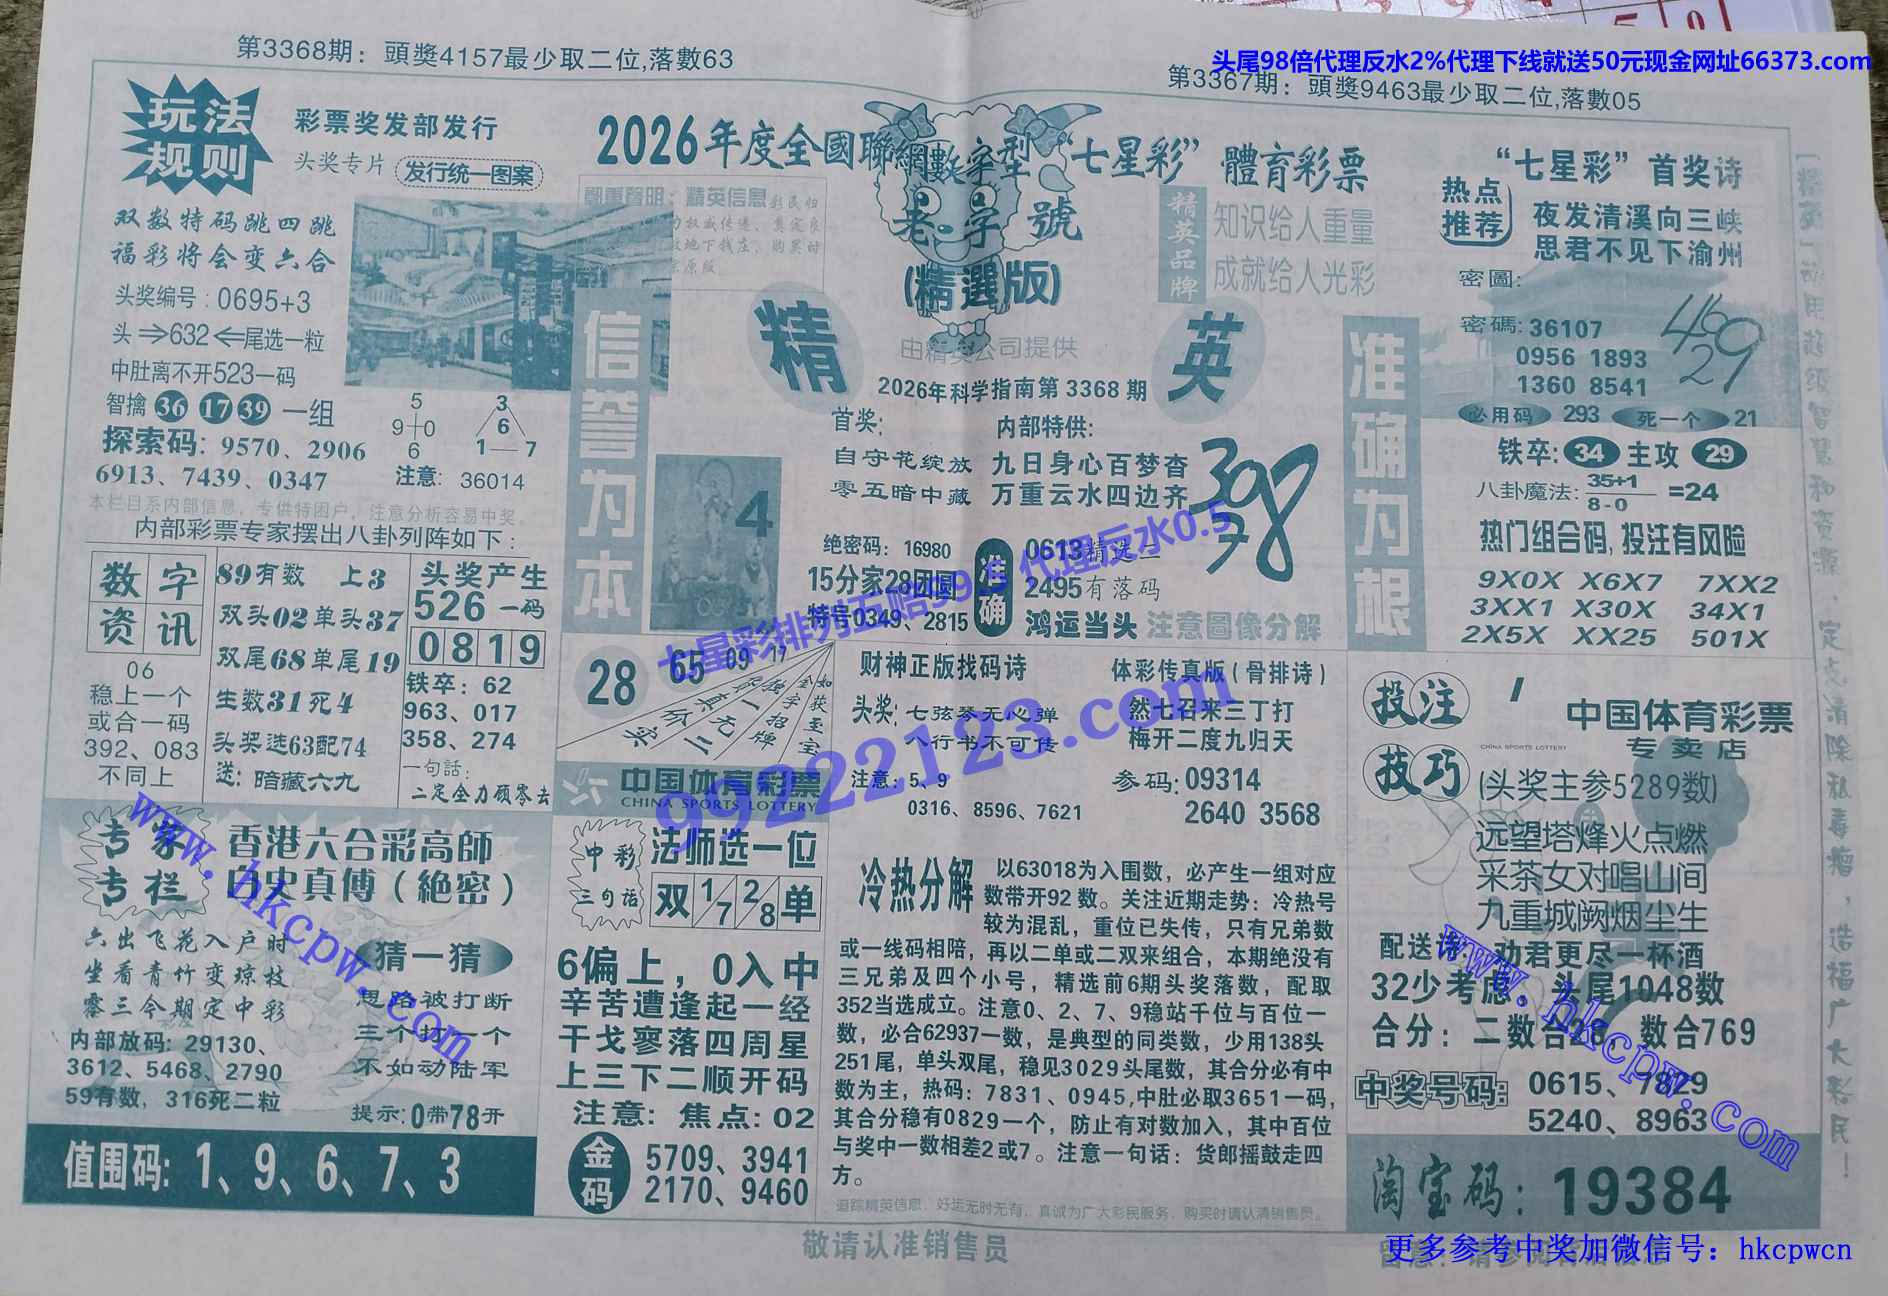 第3368期：頭獎4157最少取二位,落數63
头尾98倍代理反水2%代理下线就送50元现金网址66373.com
第3367期：頭獎9463最少取二位,落數05
玩法
规则
彩票奖发部发行
头奖专片 发行统一图案
双数特码跳四跳
福彩将会变六合
头奖编号：0695+3
头⇒632⇐尾选一粒
中肚离不开523一码
智擒 36 17 39 一组
探索码：9570、2906
6913、7439、0347
5
9 0
6
3
6
1 7
注意：36014
本栏目系内部信息，专供特困户，注意分析容易中奖。
内部彩票专家摆出八卦列阵如下：
2026年度全國聯網數字型“七星彩”體育彩票
鄭重聲明：精英信息
老字號
(精選版)
由精英公司提供
精英
2026年科学指南第3368期
精英品牌
知识给人重量
成就给人光彩
信誉为本
准确为根
4
首奖：
自守花绽放
零五暗中藏
内部特供：
九日身心百梦杳
万重云水四边齐
398
78
绝密码：16980
15分家28团圆
特号0349、2815
准确
0613精选二
2495有落码
鸿运当头 注意圖像分解
七星彩排列五赔99.9 代理反水0.5
“七星彩”首奖诗
热点
推荐
夜发清溪向三峡
思君不见下渝州
密圖：
密碼：36107
0956 1893
1360 8541
469
29
必用码 293 死一个 21
铁卒：34 主攻 29
八卦魔法：35+1/8-0=24
热门组合码,投注有风险
9X0X X6X7 7XX2
3XX1 X30X 34X1
2X5X XX25 501X
数字
资讯
06
稳上一个
或合一码
392、083
不同上
89有数 上3
双头02单头37
双尾68单尾19
生数31死4
头奖选63配74
送：暗藏六九
头奖产生
526一码
0819
铁卒：62
963、017
358、274
一句話：
二定全力顾零去
28 65 09 17
如获至宝
金字招牌
独一
真无二
价实
中国体育彩票
CHINA SPORTS LOTTERY
财神正版找码诗
头奖：七弦琴无心弹
个行书不可传
注意：5、9
0316、8596、7621
体彩传真版（骨排诗）
然七召来三丁打
梅开二度九归天
参码：09314
2640 3568
99222123.com
投注
技巧
中国体育彩票
CHINA SPORTS LOTTERY
专卖店
(头奖主参5289数)
远望塔烽火点燃
采茶女对唱山间
九重城阙烟尘生
配送诗：劝君更尽一杯酒
32少考虑，头尾1048数
合分：二数合28，数合769
中奖号码：0615、7829
5240、8963
淘宝码：19384
专家
专栏
香港六合彩高師
白史真傅（絶密）
六出飞花入户时
坐看青竹变琼枝
零三今期定中彩
内部放码：29130、
3612、5468、2790
59有数，316死二粒
猜一猜
思路被打断
三个打一个
不如动陆军
提示：0带78开
值围码：1、9、6、7、3
www.hkcpw.com
中彩
三句话
法师选一位
双 1/7 2/8 单
6偏上，0入中
辛苦遭逢起一经
干戈寥落四周星
上三下二顺开码
注意：焦点：02
金码
5709、3941
2170、9460
冷热分解
以63018为入围数，必产生一组对应
数带开92数。关注近期走势：冷热号
较为混乱，重位已失传，只有兄弟数
或一线码相陪，再以二单或二双来组合，本期绝没有
三兄弟及四个小号，精选前6期头奖落数，配取
352当选成立。注意0、2、7、9稳站千位与百位一
数，必合62937一数，是典型的同类数，少用138头
251尾，单头双尾，稳见3029头尾数，其合分必有中
数为主，热码：7831、0945,中肚必取3651一码，
其合分稳有0829一个，防止有对数加入，其中百位
与奖中一数相差2或7。注意一句话：货郎摇鼓走四
方。
追踪精英信息，好运无时无有，真诚为广大彩民服务，购买时请认清销售员。
敬请认准销售员
www.hkcpw.com
更多参考中奖加微信号：hkcpwcn